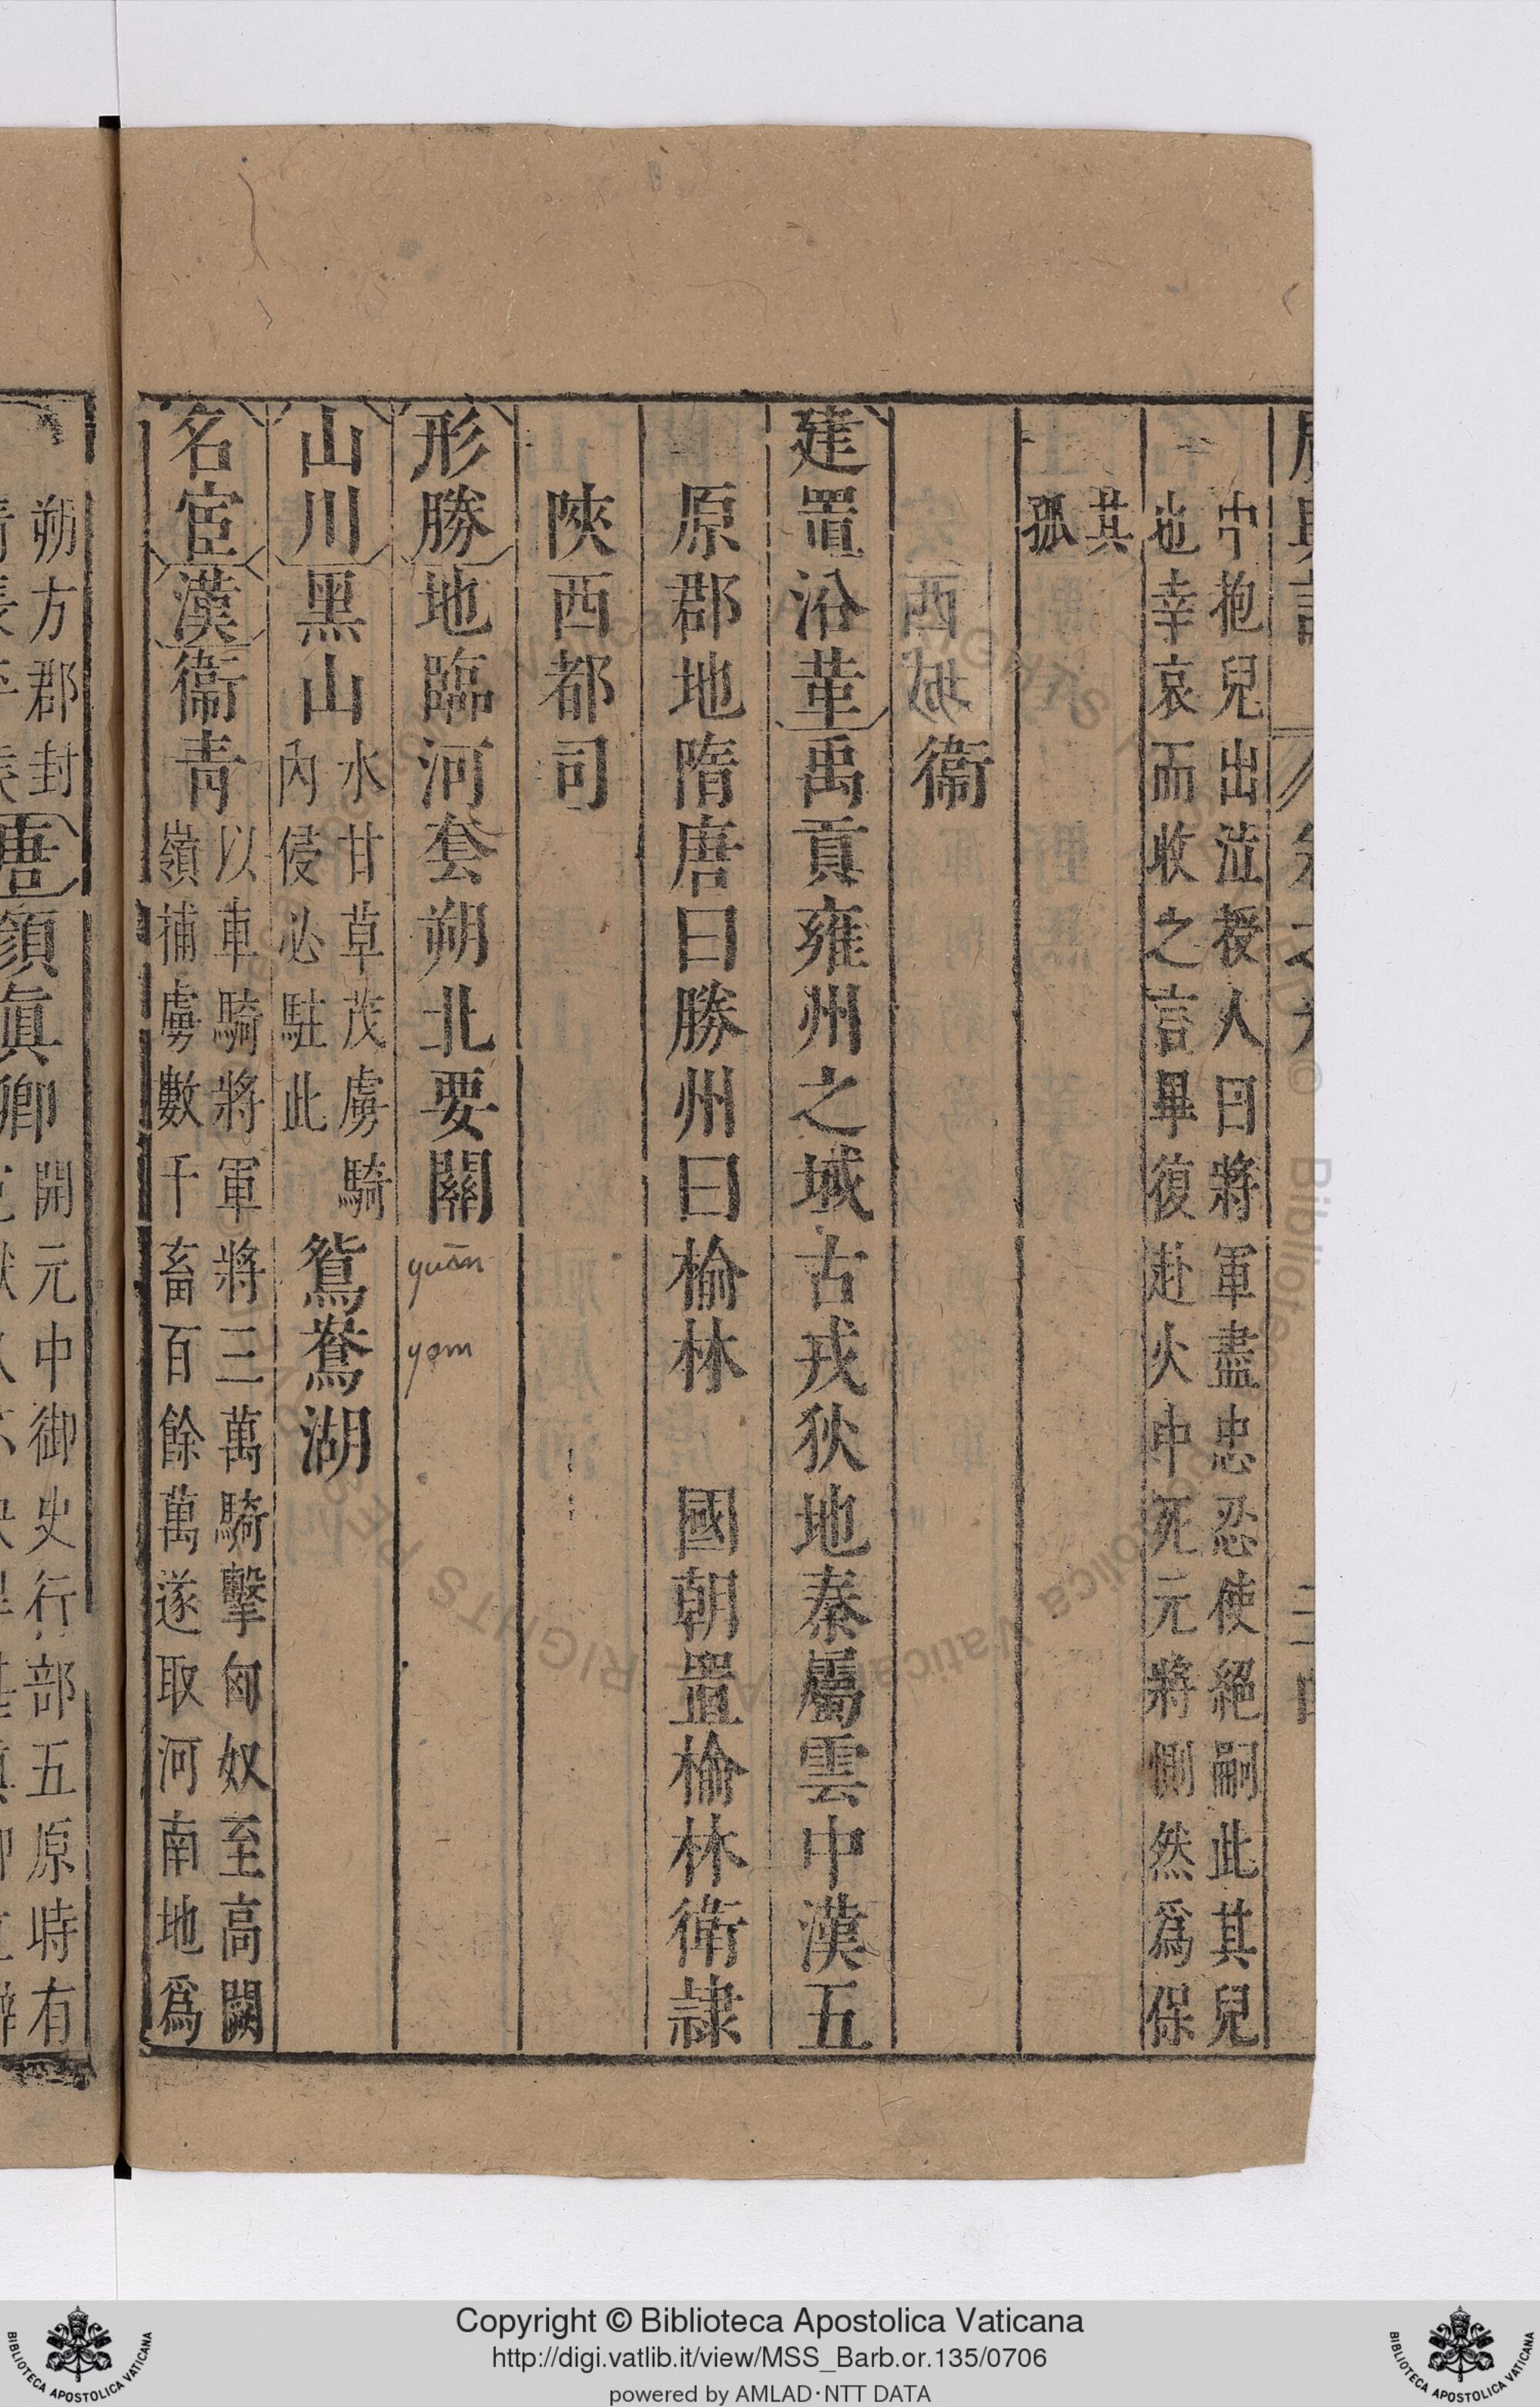 中抱兒出泣授人曰將軍盡忠忍使絕嗣此其兒
也幸哀而收之言畢復赴火中死元將惻然爲保
其
孤
衞
建置沿革禹貢雍州之域古戎狄地秦屬雲中漢五
原郡地隋唐曰勝州曰榆林 國朝置榆林衛隷
陝西都司
形勝地臨河套朔北要關
yuān
yam
山川黑山
水甘草茂虜騎
內侵必駐此
鴛鴦湖
名宦漢衞青
以車騎將軍將三萬騎擊匈奴至高闕
嶺捕虜數千畜百餘萬遂取河南地爲
朔方郡封
唐顏眞卿
開元中御史行部五原時有
Copyright © Biblioteca Apostolica Vaticana
http://digi.vatlib.it/view/MSS_Barb.or.135/0706
powered by AMLAD·NTT DATA
BIBLIOTECA APOSTOLICA VATICANA
BIBLIOTECA APOSTOLICA VATICANA